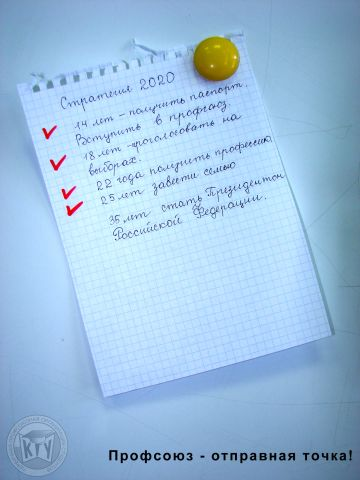 Стратегия 2020
14 лет - получить паспорт.
Вступить в профсоюз.
18 лет - проголосовать на
выборах.
22 года получить профессию
25 лет завести семью
35 лет стать Президентом
Российской Федерации.
КТУ
Профсоюз - отправная точка!